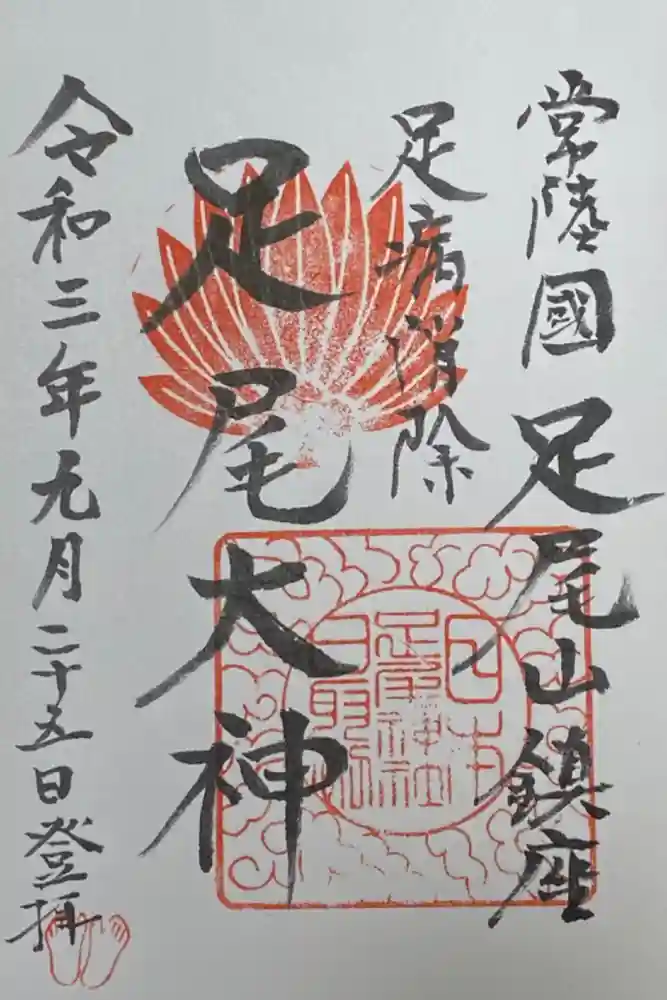 常陸國足尾山鎮座
足痛消除
足尾大神
令和三年九月二十五日登拝
日本
足尾神社